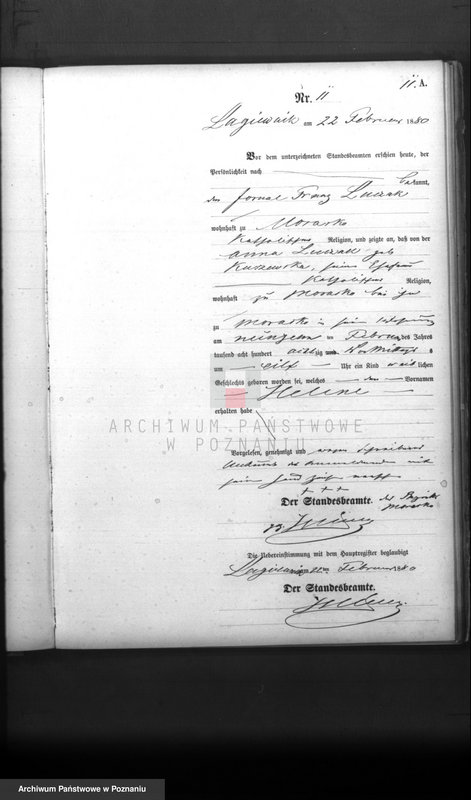 11. A.
Nr. 11
Lagiewnik am 22 Februar 1880
Vor dem unterzeichneten Standesbeamten erschien heute, der
Persönlichkeit nach
bekannt,
der Fornal Franz
wohnhaft zu Morasko
Katholischer Religion, und zeigte an, daß von der
Anna geb
seine Ehefrau
Katholischer Religion,
wohnhaft zu Morasko bei ihm
zu Morasko in seiner Wohnung
am neunzehn ten Februar des Jahres
tausend acht hundert achtzig und Vormittags
um eilf Uhr ein Kind weiblichen
Geschlechts geboren worden sei, welches den Vornamen
Helene
erhalten habe
ARCHIWUM PAŃSTWOWE
W POZNANIU
Vorgelesen, genehmigt und wegen
des mit
+ + +
Der Standesbeamte. des Bezirks
Morasko
Die Uebereinstimmung mit dem Hauptregister beglaubigt
Lagiewnik am 22ten Februar 1880
Der Standesbeamte.
Archiwum Państwowe w Poznaniu